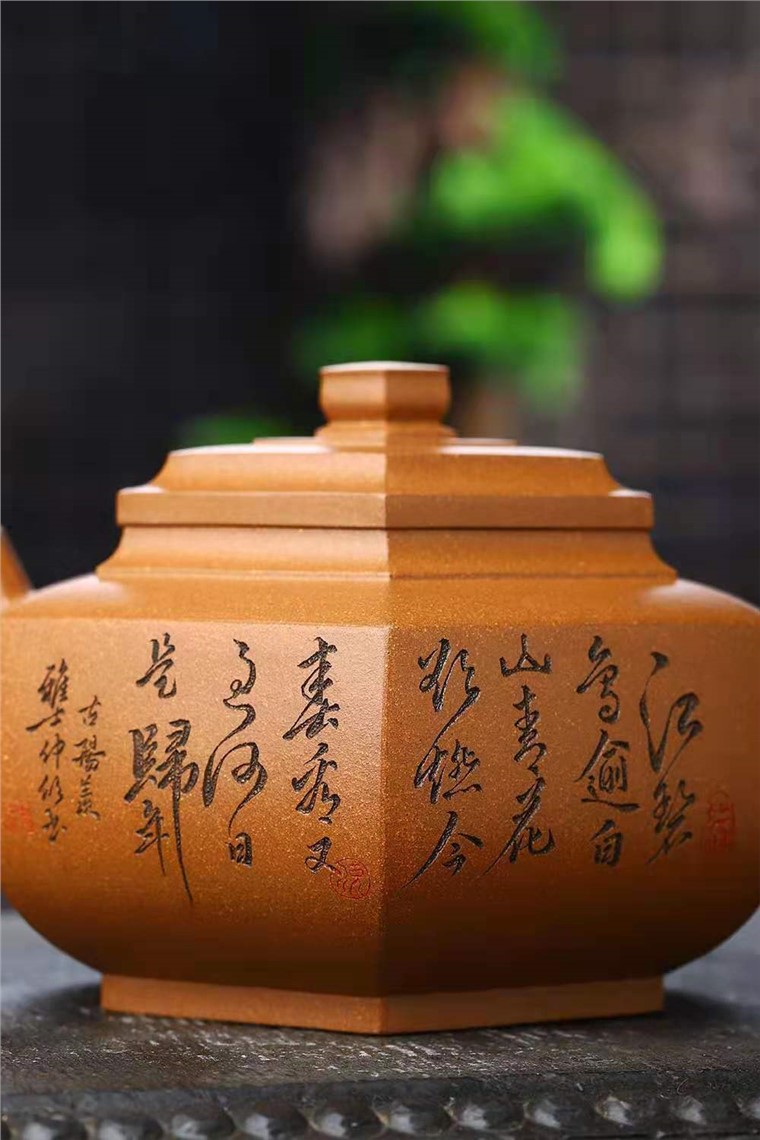 江碧
鳥逾白
山青花
欲燃今
春看又
過何日
是歸年
古陽羨
雅士仲书